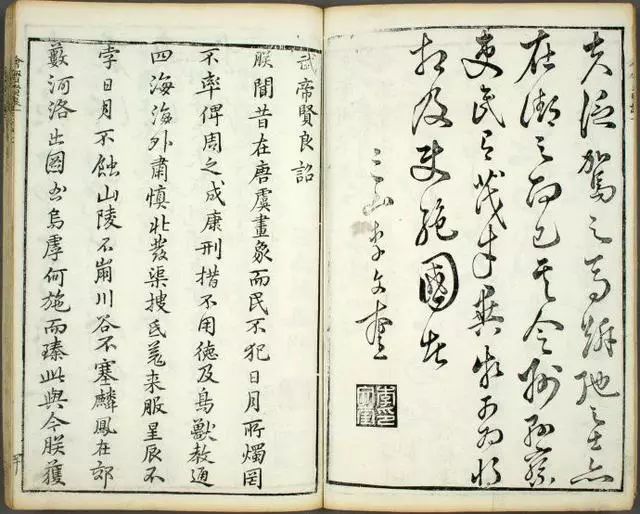 夫泛駕之馬跅弛之士亦
在御之而已其令州察
吏民有茂才異等可為將
相及使絕國者
三山李文
武帝賢良詔
朕聞昔在唐虞畫象而民不犯日月所燭罔
不率俾周之成康刑措不用德及鳥獸教通
四海海外肅慎北發渠搜氐羌来服星辰不
孛日月不蝕山陵不崩川谷不塞麟鳳在郊
藪河洛出圖書烏虖何施而臻此與今朕獲